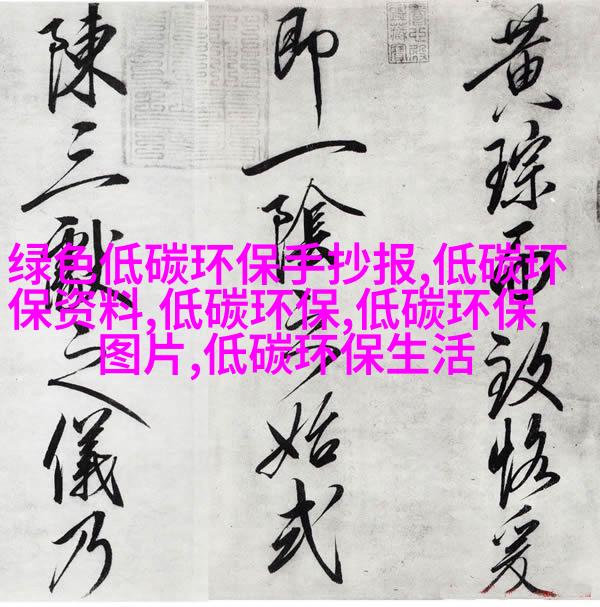 黄琮而致恪爰
即一陰之始式
陳三獻之儀乃
绿色低碳环保手抄报,低碳环
保资料,低碳环保,低碳环保
图片,低碳环保生活